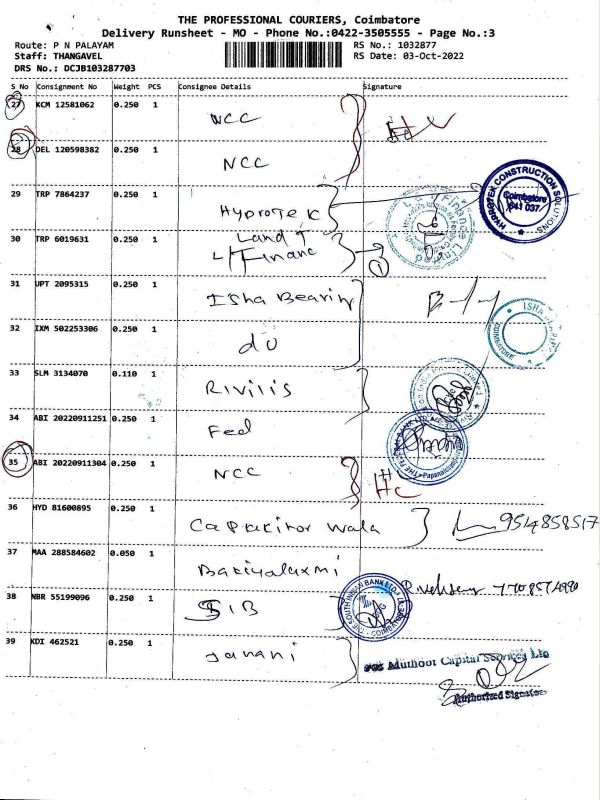 THE PROFESSIONAL COURIERS, Coimbatore
Delivery Runsheet - MO - Phone No.:0422-3505555 - Page No.:3
Route: P N PALAYAM
RS No.: 1032877
Staff: THANGAVEL
RS Date: 03-Oct-2022
DRS No.: DCJB103287703
S No Consignment No Weight PCS Consignee Details Signature
27 KCM 12581062 0.250 1 NCC
28 DEL 120598382 0.250 1 NCC
29 TRP 7864237 0.250 1 Hyprotek
HYPROTEK CONSTRUCTION SOLUTIONS
Coimbatore
641 037
30 TRP 6019631 0.250 1 Land T
Financ
31 UPT 2095315 0.250 1 Isha Bearing
COIMBATORE
32 IXM 502253306 0.250 1 do
33 SLM 3134070 0.110 1 Rivilis
34 ABI 20220911251 0.250 1 Fed
35 ABI 20220911304 0.250 1 NCC
36 HYD 81600895 0.250 1 Capakitor wala
37 MAA 288584602 0.050 1 Bakiyalaxmi
38 NBR 55199096 0.250 1 SIB
THE SOUTH INDIAN BANK LTD
COIMBATORE
39 KDI 462521 0.250 1 Janani
Muthoot Capital Services Ltd
Authorised Signatory